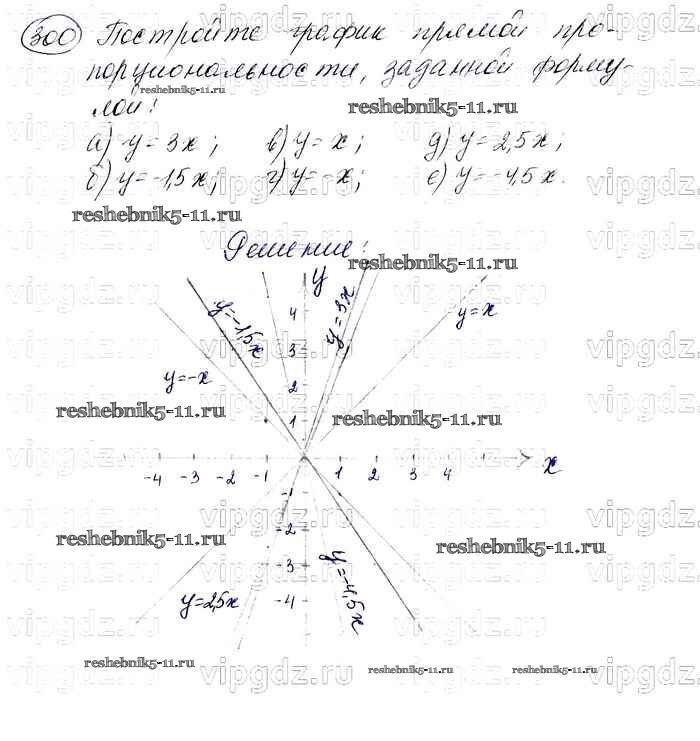 300 Постройте график прямой про-
порциональности, заданной форму-
лой:
а) y = 3x; в) y = x; д) y = 2,5x;
б) y = -1,5x; г) y = -x; е) y = -4,5x.
Решение:
y
y=-1,5x
y=3x
y=x
y=-x
4
3
2
1
-4 -3 -2 -1 1 2 3 4 x
-1
-2
-3
-4
y=2,5x
y=-4,5x
reshebnik5-11.ru
reshebnik5-11.ru
reshebnik5-11.ru
reshebnik5-11.ru
reshebnik5-11.ru
reshebnik5-11.ru
reshebnik5-11.ru
reshebnik5-11.ru
reshebnik5-11.ru
reshebnik5-11.ru
reshebnik5-11.ru
vipgdz.ru